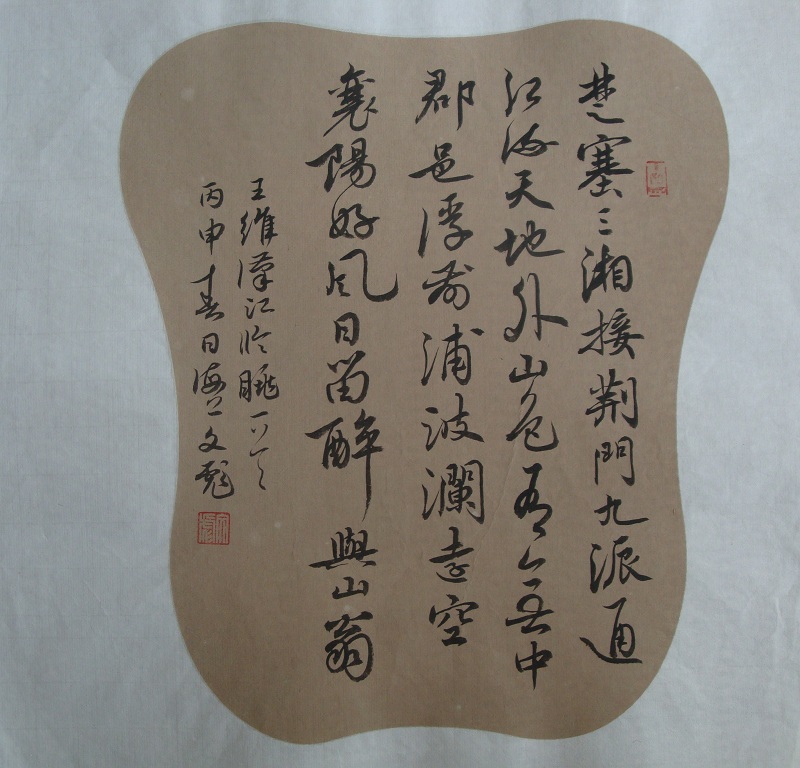 楚塞三湘接荆門九派通
江流天地外山色有無中
郡邑浮前浦波瀾遠空
襄陽好風日留醉與山翁
王維漢江臨眺一首
丙申春日海上文彪